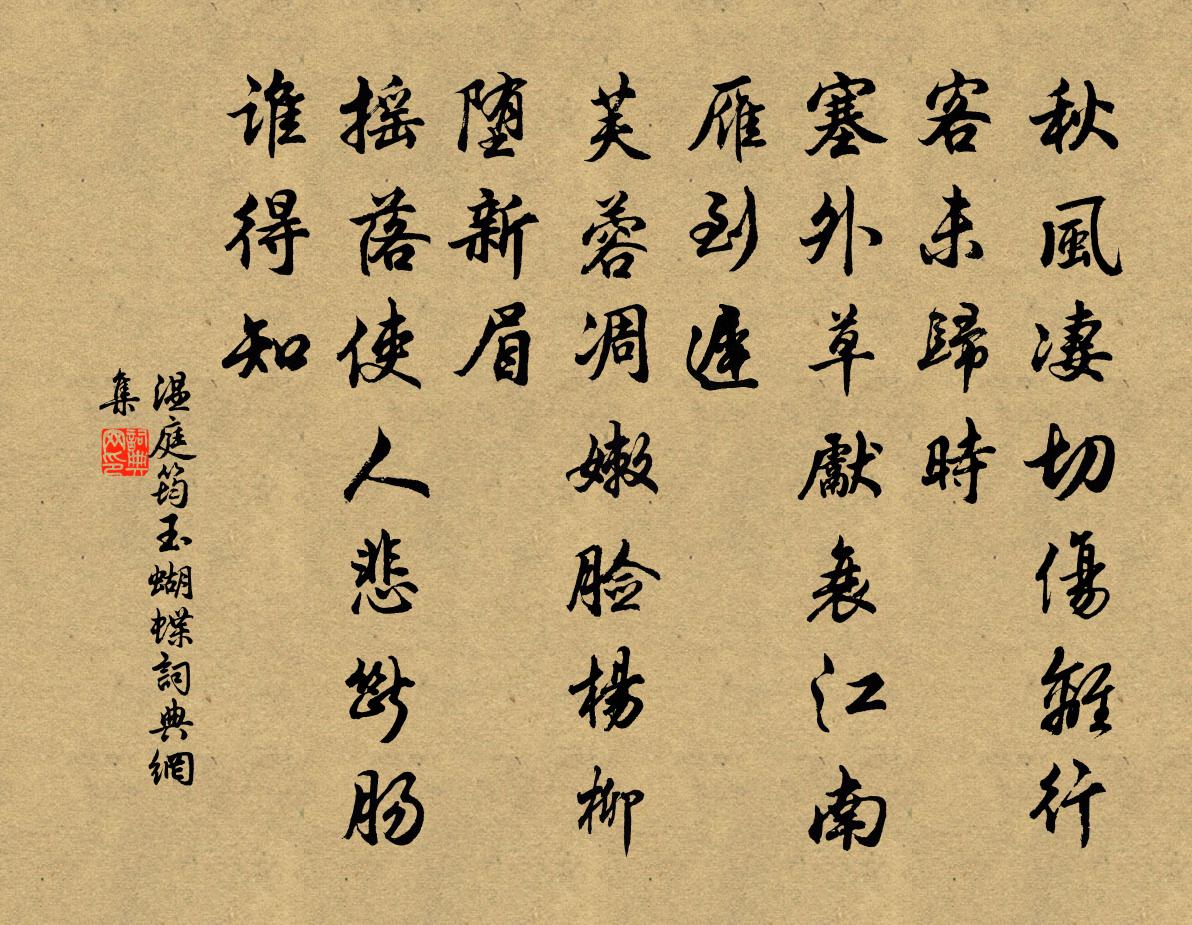 秋風淒切傷離行
客未歸時
塞外草獻衰江南
雁到遲
芙蓉凋嫩臉楊柳
墮新眉
搖落使人悲斷腸
誰得知
溫庭筠玉蝴蝶詞典網
集
詞典
网印